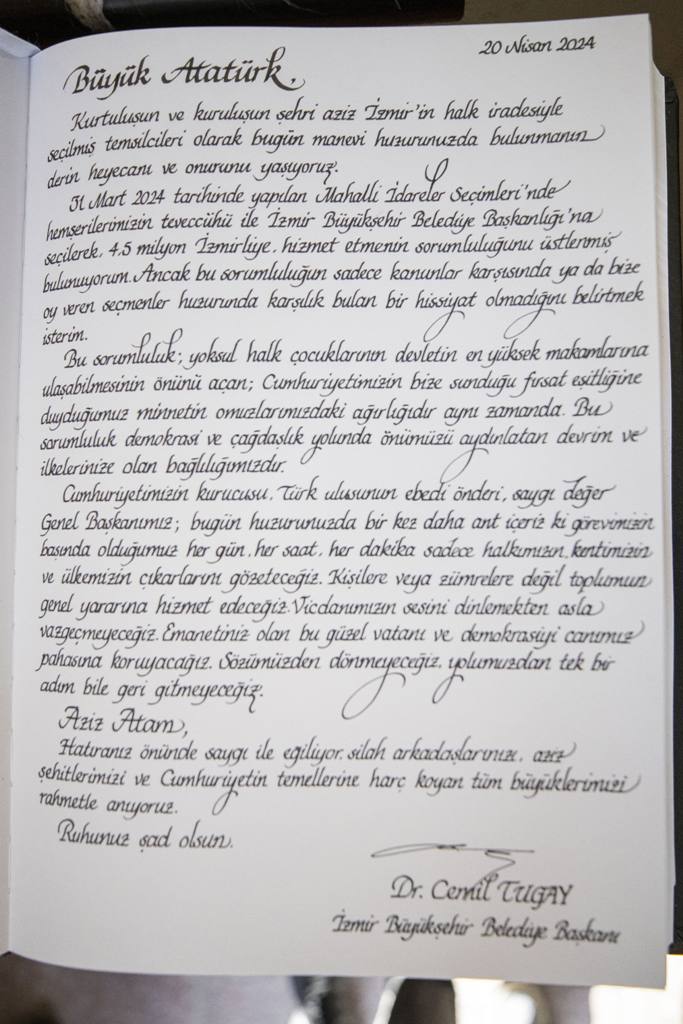 20 Nisan 2024
Büyük Atatürk,
Kurtuluşun ve kuruluşun şehri aziz İzmir'in halk iradesiyle
seçilmiş temsilcileri olarak bugün manevi huzurunuzda bulunmanın
derin heyecanı ve onurunu yaşıyoruz.
31 Mart 2024 tarihinde yapılan Mahalli İdareler Seçimleri'nde
hemşerilerimizin teveccühü ile İzmir Büyükşehir Belediye Başkanlığı'na
seçilerek, 4,5 milyon İzmirliye, hizmet etmenin sorumluluğunu üstlenmiş
bulunuyorum. Ancak bu sorumluluğun sadece kanunlar karşısında ya da bize
oy veren seçmenler huzurunda karşılık bulan bir hissiyat olmadığını belirtmek
isterim.
Bu sorumluluk; yoksul halk çocuklarının devletin en yüksek makamlarına
ulaşabilmesinin önünü açan; Cumhuriyetimizin bize sunduğu fırsat eşitliğine
duyduğumuz minnetin omuzlarımızdaki ağırlığıdır aynı zamanda. Bu
sorumluluk demokrasi ve çağdaşlık yolunda önümüzü aydınlatan devrim ve
ilkelerinize olan bağlılığımızdır.
Cumhuriyetimizin kurucusu, Türk ulusunun ebedi önderi, saygı değer
Genel Başkanımız; bugün huzurunuzda bir kez daha ant içeriz ki görevimizin
başında olduğumuz her gün, her saat, her dakika sadece halkımızın, kentimizin
ve ülkemizin çıkarlarını gözeteceğiz. Kişilere veya zümrelere değil toplumun
genel yararına hizmet edeceğiz. Vicdanımızın sesini dinlemekten asla
vazgeçmeyeceğiz. Emanetiniz olan bu güzel vatanı ve demokrasiyi canımız
pahasına koruyacağız. Sözümüzden dönmeyeceğiz, yolumuzdan tek bir
adım bile geri gitmeyeceğiz.
Aziz Atam,
Hatıranız önünde saygı ile eğiliyor, silah arkadaşlarınızı, aziz
şehitlerimizi ve Cumhuriyetin temellerine harç koyan tüm büyüklerimizi
rahmetle anıyoruz.
Ruhunuz şad olsun.
Dr. Cemil TUGAY
İzmir Büyükşehir Belediye Başkanı